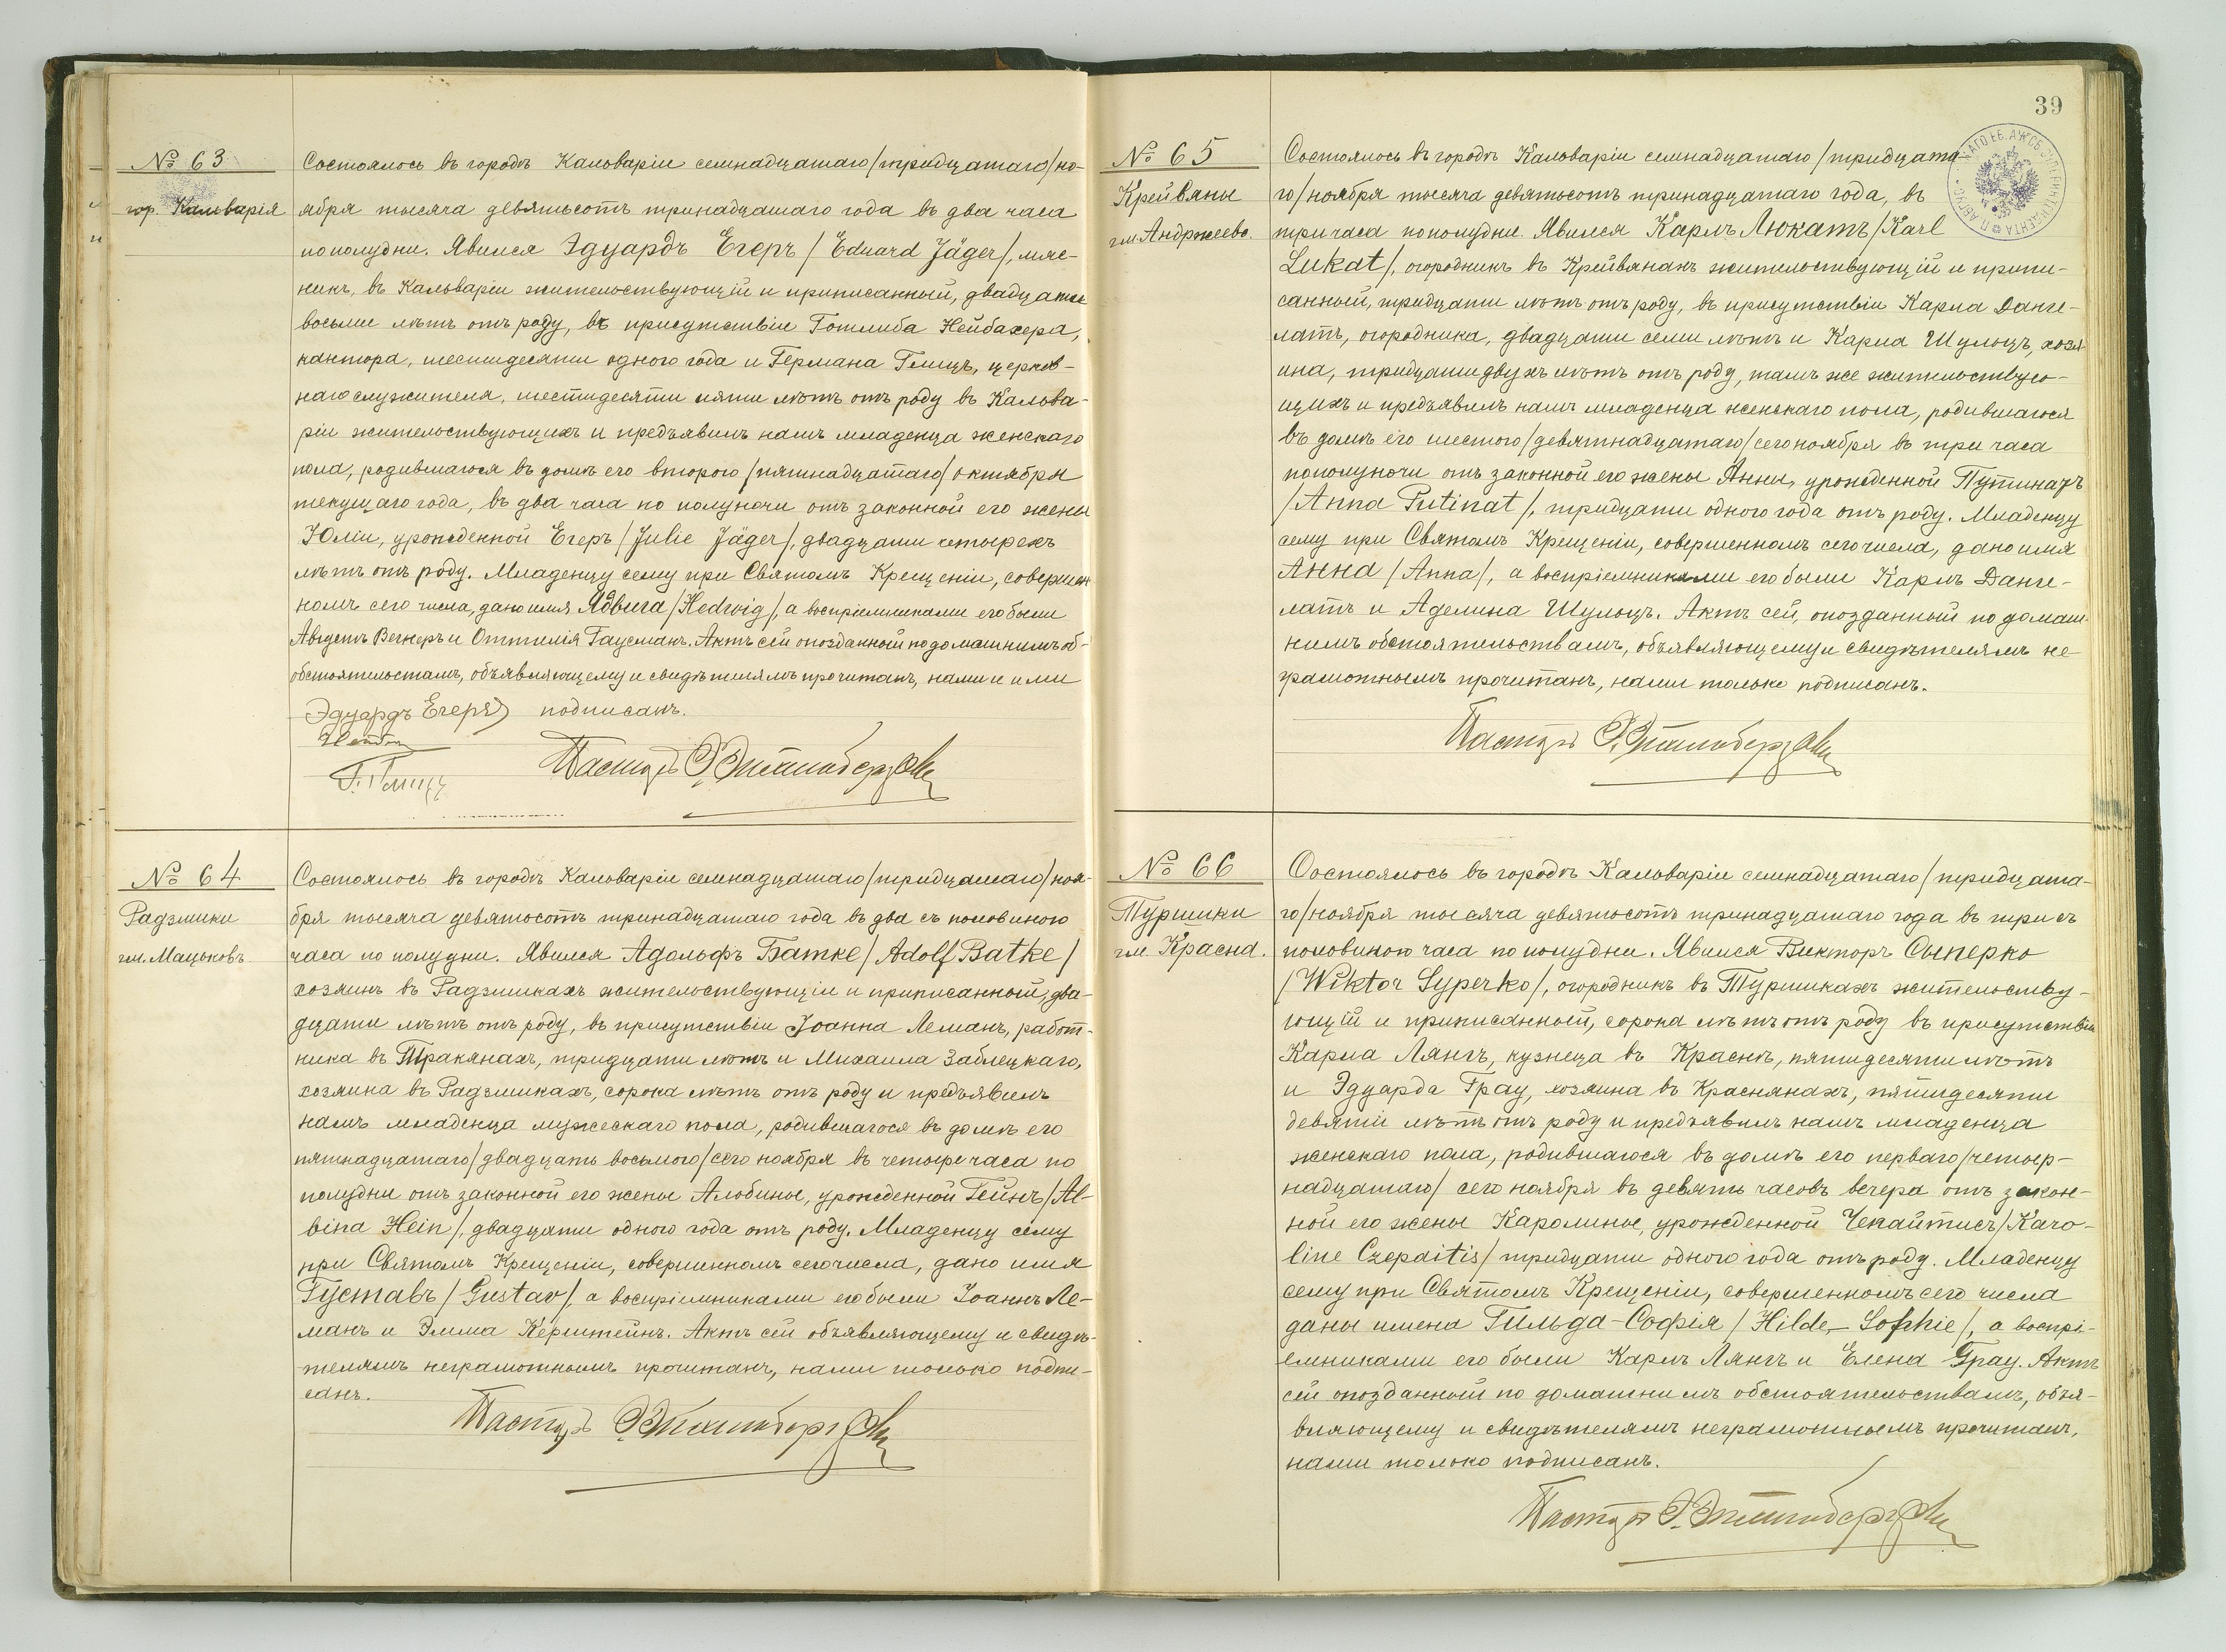 № 63
гор. Кальварія
Состоялось въ городѣ Кальваріи семнадцатаго /тридцатаго/ но-
ября тысяча девятьсотъ тринадцатаго года въ два часа
пополудни. Явился Эдуардъ Егеръ /Eduard Jäger/, мяс-
никъ, въ Кальваріи жительствующій и приписанный, двадцати
восьми лѣтъ отъ роду, въ присутствіи Готлиба Нейбахера,
кантора, шестидесяти одного года и Германа Глицъ, церков-
наго служителя, шестидесяти пяти лѣтъ отъ роду въ Кальва-
ріи жительствующихъ и предъявилъ намъ младенца женскаго
пола, родившагося въ домѣ его второго /пятнадцатаго/ октября
текущаго года, въ два часа по полуночи отъ законной его жены
Юліи, урожденной Егеръ /Julie Jäger/, двадцати четырехъ
лѣтъ отъ роду. Младенцу сему при Святомъ Крещеніи, совершен
номъ сего числа, дано имя Ядвига /Hedwig/, а воспріемниками его были
Августъ Вегнеръ и Оттилія Гаусманъ. Актъ сей опозданный по домашнимъ об-
обстоятельстамъ, объявляющему и свидѣтелямъ прочитанъ, нами и ими
Эдуардъ Егеръ подписанъ.
Г. Глицъ
Пасторъ
№ 64
Радзишки
гм. Мацьковъ
Состоялось въ городѣ Кальваріи семнадцатаго /тридцатаго/ ноя-
бря тысяча девятьсотъ тринадцатаго года въ два съ половиною
часа по полудни. Явился Адольфъ Батке /Adolf Batke/
хозяинъ въ Радзишкахъ жительствующій и приписанный, два-
дцати лѣтъ отъ роду, въ присутствіи Іоанна Леманъ, работ-
ника въ Тракянахъ, тридцати лѣтъ и Михаила Заблецкаго,
хозяина въ Радзишкахъ, сорока лѣтъ отъ роду и предъявилъ
намъ младенца мужескаго пола, родившагося въ домѣ его
пятнадцатаго /двадцать восьмого/ сего ноября въ четыре часа по
полудни отъ законной его жены Альбины, урожденной Гейнъ /Al-
bina Hein/, двадцати одного года отъ роду. Младенцу сему
при Святомъ Крещеніи, совершенномъ сего числа, дано имя
Густавъ /Gustav/, а воспріемниками его были Іоаннъ Ле-
манъ и Эмма Керштейнъ. Актъ сей объявляющему и свидѣ-
телямъ неграмотнымъ прочитанъ, нами только подпи-
санъ.
Пасторъ
39
№ 65
Крейвяны
гм. Андржеево.
Состоялось въ городѣ Кальваріи семнадцатаго /тридцата-
го/ ноября тысяча девятьсотъ тринадцатаго года, въ
три часа пополудни. Явился Карлъ Люкатъ /Karl
Lukat/, огородникъ въ Крейвянахъ жительствующій и припи-
санный, тридцати лѣтъ отъ роду, въ присутствіи Карла Данге-
латъ, огородника, двадцати семи лѣтъ и Карла Шульцъ, хозя-
ина, тридцати двухъ лѣтъ отъ роду, тамъ же жительствую-
щихъ и предъявилъ намъ младенца женскаго пола, родившагося
въ домѣ его шестого /девятнадцатаго/ сего ноября въ три часа
пополуночи отъ законной его жены Анны, урожденной Путинатъ
/Anna Putinat/, тридцати одного года отъ роду. Младенцу
сему при Святомъ Крещеніи, совершенномъ сего числа, дано имя
Анна /Anna/, а воспріемниками его были Карлъ Данге-
латъ и Аделина Шульцъ. Актъ сей, опозданный по домаш-
нимъ обстоятельствамъ, объявляющему и свидѣтелямъ не-
грамотнымъ прочитанъ, нами только подписанъ.
Пасторъ
№ 66
Туршики
гм. Красна.
Состоялось въ городѣ Кальваріи семнадцатаго /тридцата-
го/ ноября тысяча девятьсотъ тринадцатаго года въ три съ
половиною часа по полудни. Явился Викторъ Сыперко
/Wiktor Syperko/, огородникъ въ Туршикахъ жительству-
ющій и приписанный, сорока лѣтъ отъ роду въ присутствіи
Карла Лянгъ, кузнеца въ Краснѣ, пятидесяти лѣтъ
и Эдуарда Грау, хозяина въ Краснянахъ, пятидесяти
девяти лѣтъ отъ роду и предъявилъ намъ младенца
женскаго пола, родившагося въ домѣ его перваго /четыр-
надцатаго/ сего ноября въ девять часовъ вечера отъ закон-
ной его жены Каролины, урожденной Чепайтисъ /Karo-
line Czepaitis/ тридцати одного года отъ роду. Младенцу
сему при Святомъ Крещеніи, совершенномъ сего числа
даны имена Гильда-Софія /Hilde-Sophie/, а воспрі-
емниками его были Карлъ Лянгъ и Елена Грау. Актъ
сей опозданный по домашнимъ обстоятельствамъ, объя-
вляющему и свидѣтелямъ неграмотнымъ прочитанъ,
нами только подписанъ.
Пасторъ